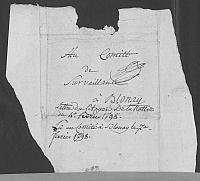 Au Comité
de
Surveillance
à Blonay
Lettre du Citoyen De la Hottes
du 1er février 1798.
Lu au Comité à Blonay le 2e
février 1798.